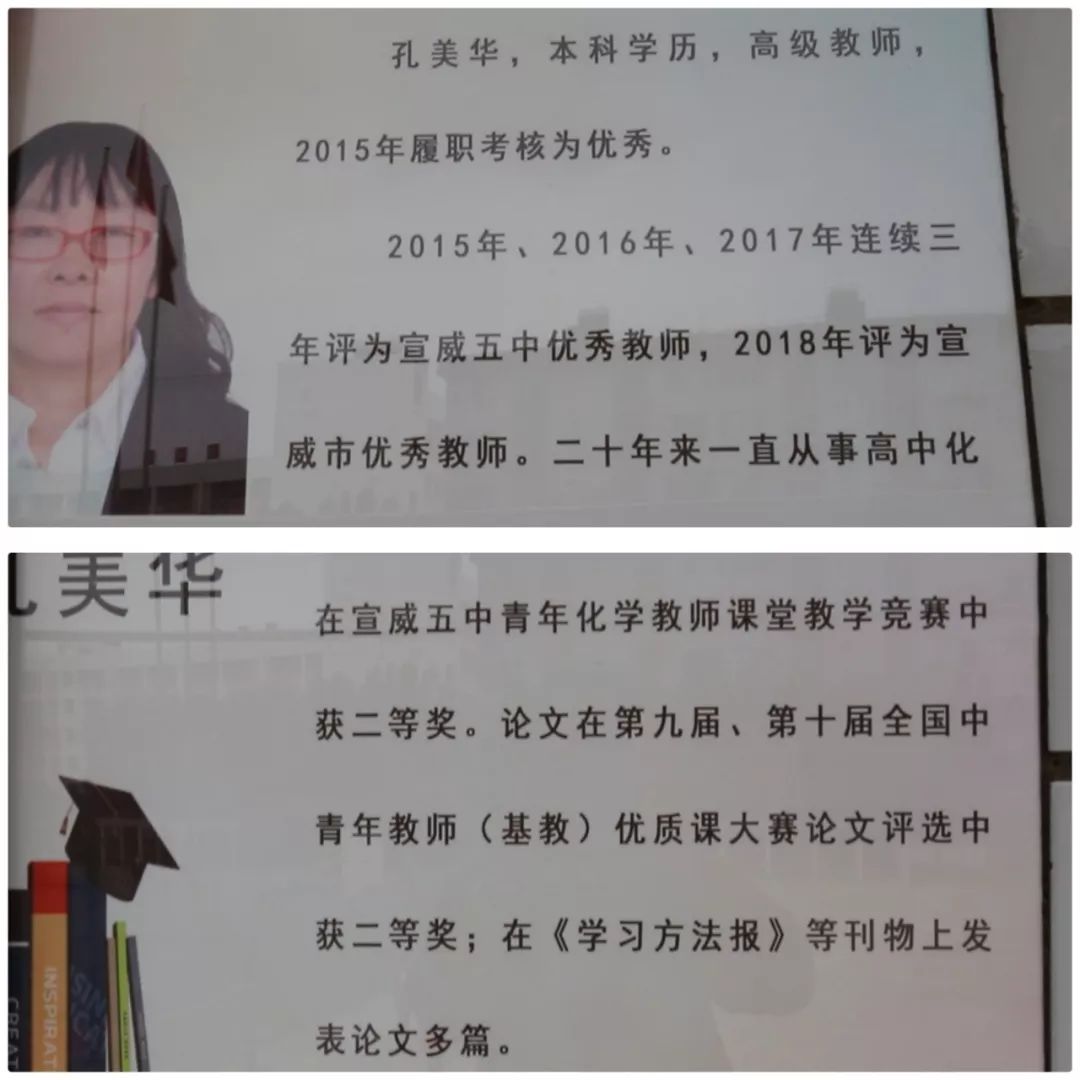 孔美华，本科学历，高级教师，
2015年履职考核为优秀。
2015年、2016年、2017年连续三
年评为宣威五中优秀教师，2018年评为宣
威市优秀教师。二十年来一直从事高中化
美华
在宣威五中青年化学教师课堂教学竞赛中
获二等奖。论文在第九届、第十届全国中
青年教师（基教）优质课大赛论文评选中
获二等奖；在《学习方法报》等刊物上发
表论文多篇。
INSPIRAT
CREAT